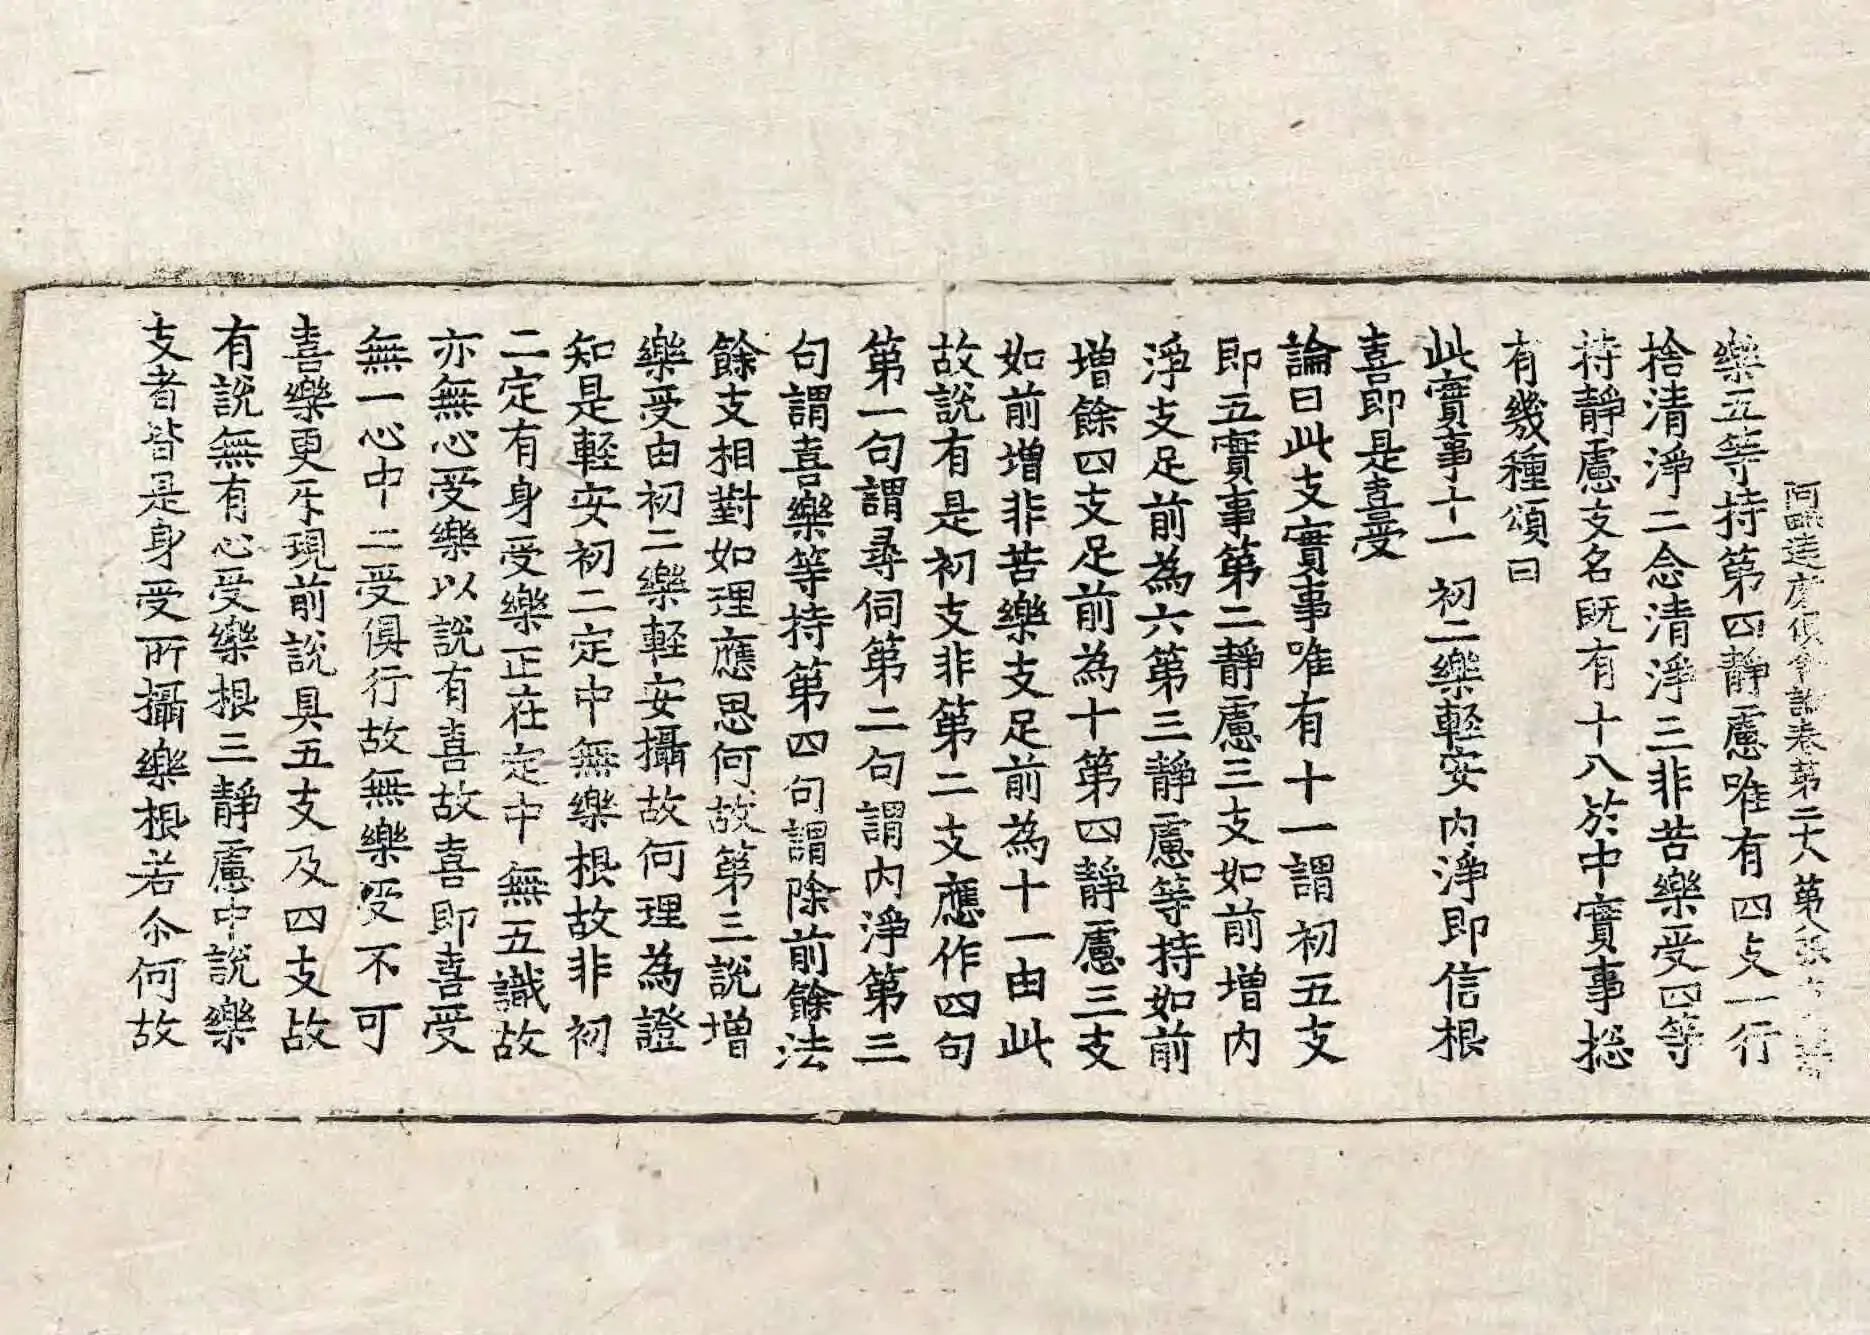 阿毗達磨俱舍論卷第二十八 第八張
樂五等持第四靜慮唯有四支一行
捨清淨二念清淨三非苦樂受四等
持靜慮支名既有十八於中實事揔
有幾種頌曰
此實事十一 初二樂輕安 內淨即信根
喜即是喜受
論曰此支實事唯有十一謂初五支
即五實事第二靜慮三支如前增內
淨支足前為六第三靜慮等持如前
增餘四支足前為十第四靜慮三支
如前增非苦樂支足前為十一由此
故說有是初支非第二支應作四句
第一句謂尋伺第二句謂內淨第三
句謂喜樂等持第四句謂除前餘法
餘支相對如理應思何故第三說增
樂受由初二樂輕安攝故何理為證
知是輕安初二定中無樂根故非初
二定有身受樂正在定中無五識故
亦無心受樂以說有喜故喜即喜受
無一心中二受俱行故無樂受不可
喜樂更互現前說具五支及四支故
有說無有心受樂根三靜慮中說樂
支者皆是身受所攝樂根若尒何故